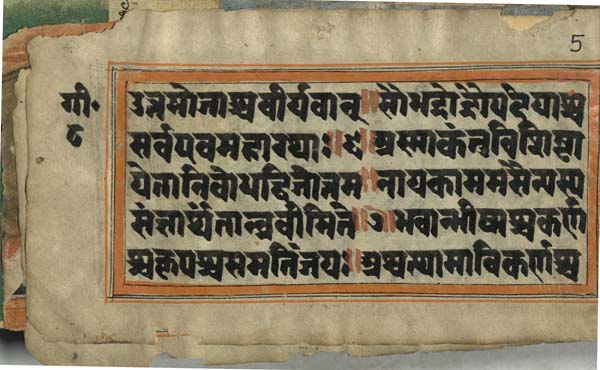 5
गी॰
८
उत्तमोजाश्चवीर्यवान् ॥ सौभद्रोद्रौपदेयाश्च
सर्वएवमहारथाः ॥ ६ ॥ अस्माकंतुविशिष्टा
येतानिबोधद्विजोत्तम ॥ नायकाममसैन्यस्य
संज्ञार्थंतान्ब्रवीमिते ॥ ७ ॥ भवान्भीष्मश्चकर्ण
श्चकृपश्चसमतिंजयः ॥ अश्वत्थामाविकर्णश्च